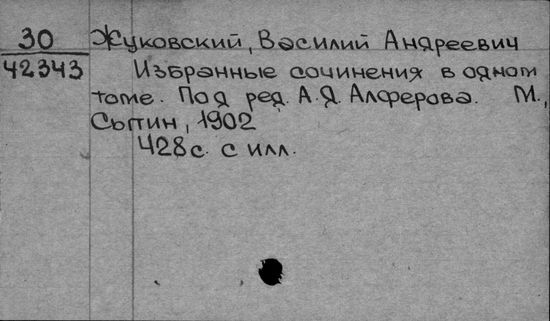 30 Жуковский, Василий Андреевич
42343 Избранные сочинения в одном
томе. Под ред. А.Я. Алферова. М.,
Сытин, 1902
428с. с илл.